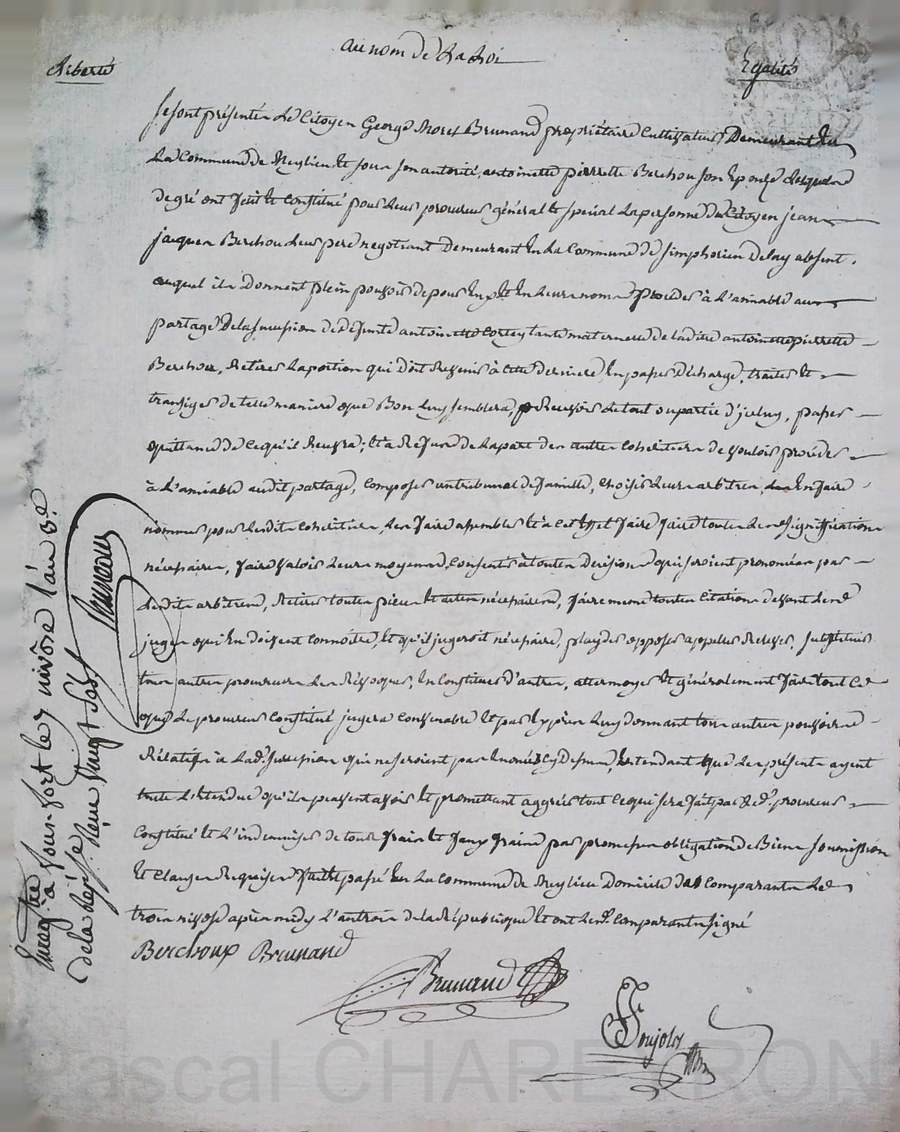 au nom de La Loi
Liberté
Egalité
Se sont présenté Le Citoyen George Noret Brunand propriétaire Cultivateur Demeurant En
La Commune de Neylieu Et sous son autorité, antoinette pierrette Berchou son Epouse Lesquels
de gré ont fait Et Constitué pour Leur procureur général Et spécial La personne du Citoyen jean
jacques Berchou Leur pere negotiant Demeurant En La Commune de simphorien delay absent.
auquel ils Donnent plein pouvoir de pour Eux Et En Leurs noms proceder à L'amiable aux
partage De La succession de Défunte antoinette tante maternelle de Ladite antoinette pierrette
Berchou, Retirer La portion qui doit Revenir à Cette derniere, En passer Décharge, traiter Et
transiger de telle maniere que Bon Luy semblera, Recevoir Le tout ou partie d'jceluy, passer
quittance de Ce qu'il Recevra; Et à Refus de La part des autres Cohéritiers de vouloir proceder
à L'amiable audit partage, Composer un tribunal de famille, choisir Leurs arbitres, En faire
nommer pour Lesdits Cohéritiers, Les faire assembler Et à Cet Effet faire faire toutes Les significations
nécessaires, faire valoir Leurs moyens, Consentir à toutes Decisions qui seroient prononcées par
Lesdits arbitres, Retirer toutes pieces Et actes nécessaires, faire meme toutes Citations devant Les
juges qui En doivent connoitre, Et qu'il jugeroit nécessaire, plaider opposer appeller Relever, substituer
tous autres procureurs Les Révoquer, En Constituer d'autres, attermoyer Et généralement faire tout Ce
que Le procureur Constitué jugera Convenable Et par Exprès Luy donnant tous autres pouvoirs
Rélatifs à Lad. succession qui ne seroient pas Enoncés Cy dessus, Entendant que Les présentes ayent
toute L'étendue qu'elles puissent avoir Et promettant aggréer tout Ce qui sera fait par Led. procureur
Constitué Et L'indemniser de tous frais Et faux frais par promesse obligation de Biens soumission
Et Clauses Requises fait Et passé En La Commune de Neylieu Domicile des Comparants Le
trois nivose après midy L'an trois de La République Et ont Lesd. Comparants signé
Berchoux Brunand
Brunand
Soujolos
Enregistré à Sour-fort le 7 nivôse l'an 3.e